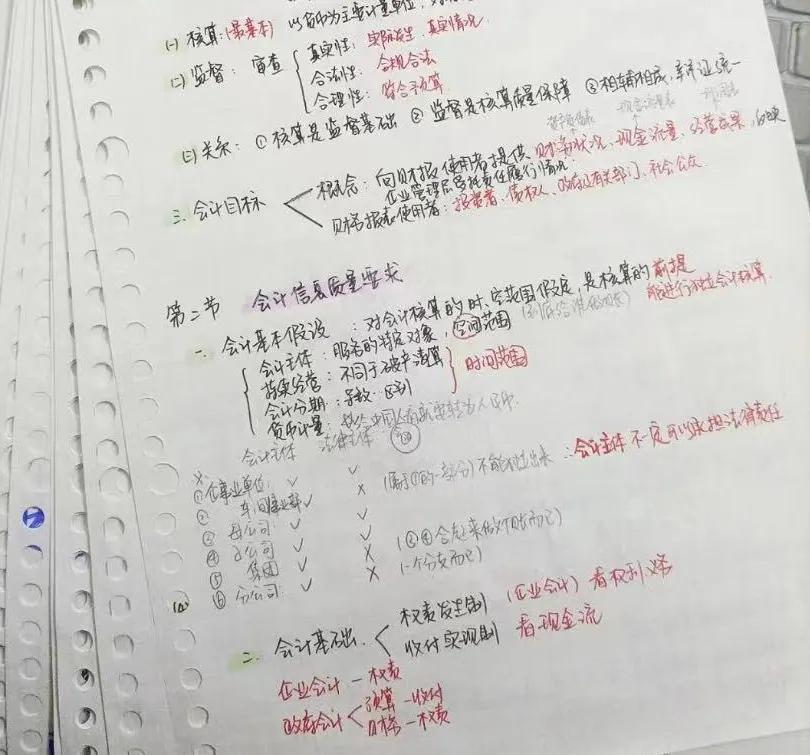 (一) 核算:(最基本) 以货币为主要计量单位,
(二) 监督: 审查
真实性: 实际发生,真实情况
合法性: 合规合法
合理性: 符合预算
(三) 关系: ① 核算是监督基础 ② 监督是核算质量保障 ③ 相辅相成,辩证统一
三. 会计目标
概念: 向财报使用者提供 财务状况、现金流量、经营成果, 反映
企业管理层受托责任履行情况.
财务报表使用者: 投资者、债权人、政府及有关部门、社会公众
第二节 会计信息质量要求
一. 会计基本假设: 对会计核算的时、空范围假定, 是核算的前提
会计主体: 服务的特定对象, 空间范围 能进行独立会计核算.
持续经营: 不同于破产清算
会计分期: 区别
时间范围
货币计量:
会计主体 法律主体
① 企事业单位: ✓ ✓
② 车间事业部 ✓ × (属于①的一部分) 不能独立出来 ∴会计主体 不一定可以承担法律责任
③ 母公司 ✓ ✓
④ 子公司 ✓ ✓
⑤ 集团 ✓ × (③④合起来做个账而已)
⑥ 分公司: ✓ × (一个分支而已)
二. 会计基础
权责发生制 (企业会计) 看权利义务
收付实现制 看现金流
企业会计 — 权责
政府会计
预算 — 收付
财务 — 权责